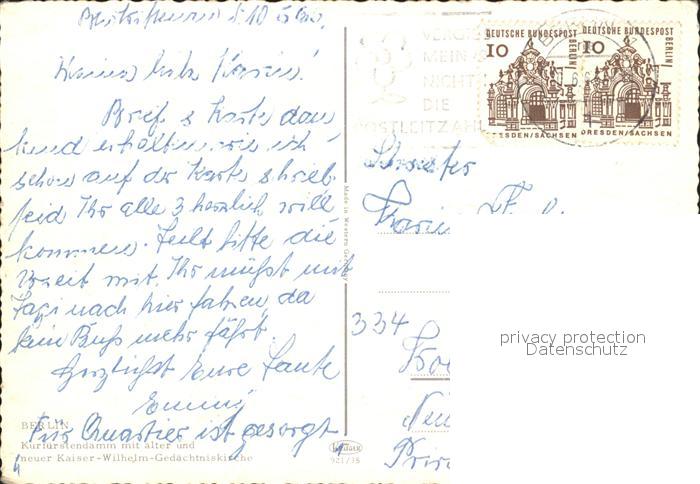 Meine liebe Karin!
Brief & Karte dan
kend erhalten, wie ich
schon auf der Karte schrieb
seid Ihr alle 3 herzlich will
kommen. Teilt bitte die
Uhrzeit mit. Ihr müßt mit
Taxi nach hier fahren, da
kein Buß mehr fährt.
Herzlichst Eure Tante
Emmy
Für Quartier ist gesorgt
BERLIN
Kurfürstendamm mit alter und
neuer Kaiser-Wilhelm-Gedächtniskirche
Made in Western Germany
921/35
VERGISS
MEIN
NICHT
DIE
POSTLEITZAHL
DEUTSCHE BUNDESPOST
BERLIN
10
DRESDEN/SACHSEN
DEUTSCHE BUNDESPOST
BERLIN
10
DRESDEN/SACHSEN
Schwester
334
privacy protection
Datenschutz